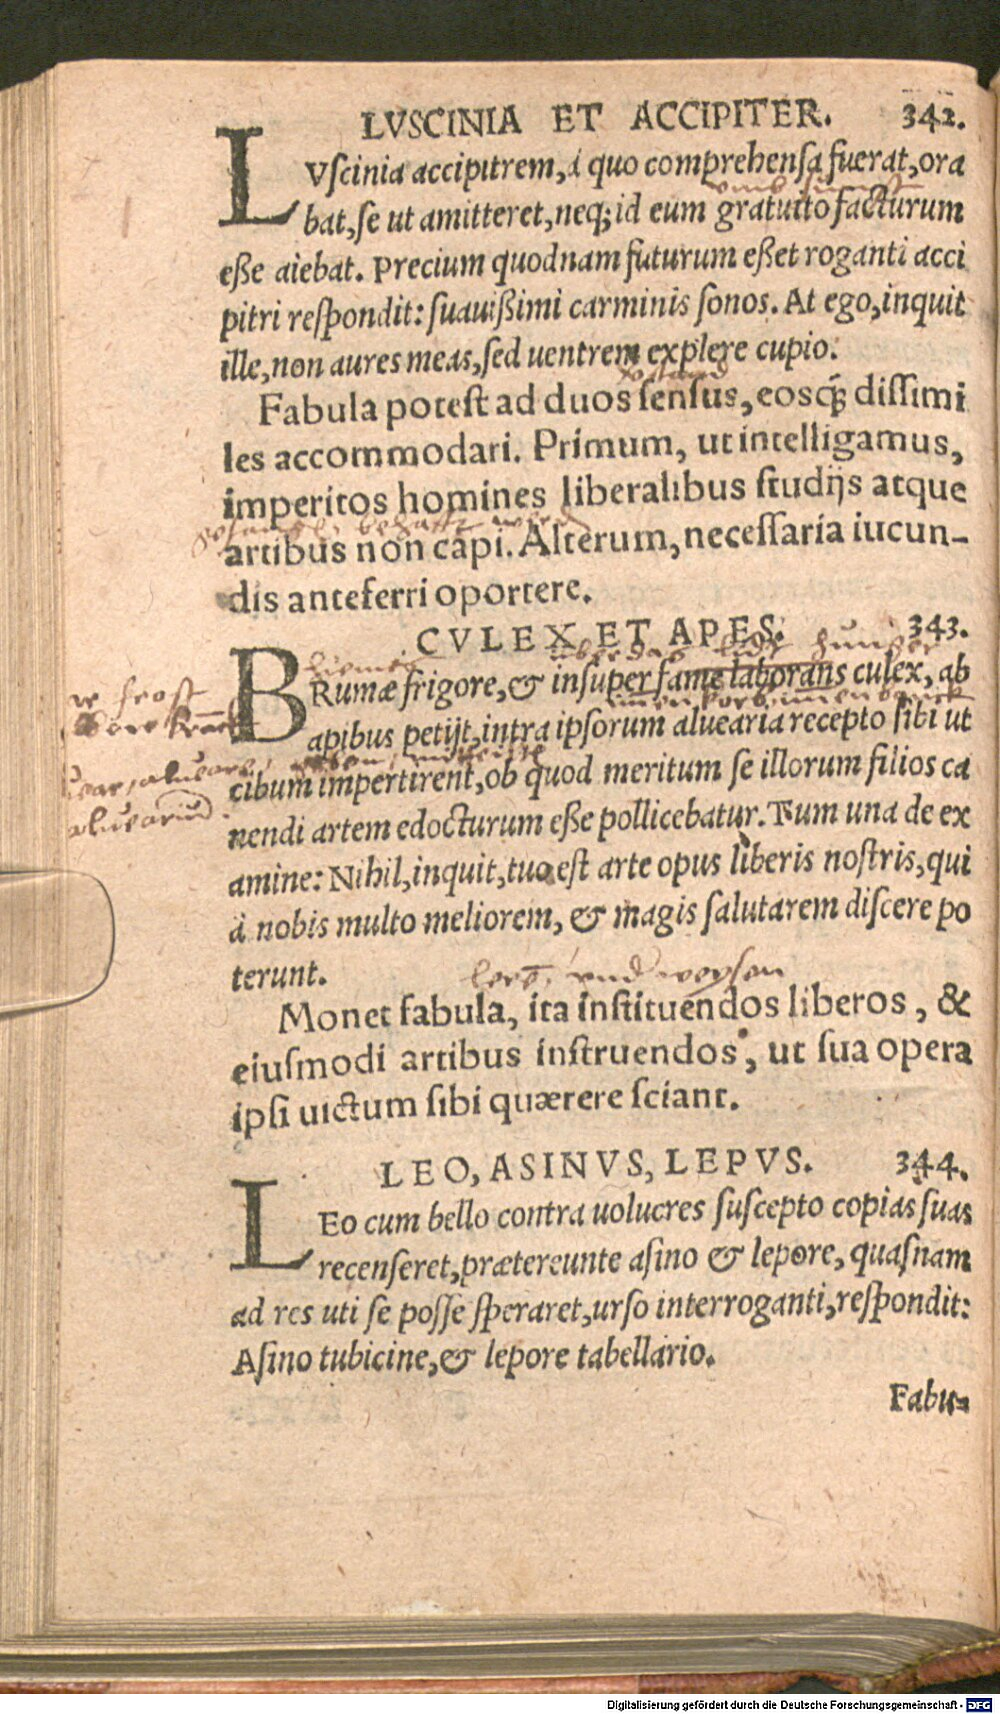 LVSCINIA ET ACCIPITER. 342.
LVſcinia accipitrem, à quo comprehenſa fuerat, ora
bat, ſe ut amitteret, neq; id eum gratuito facturum
eße aiebat. Precium quodnam futurum eßet roganti acci
pitri reſpondit: ſuauißimi carminis ſonos. At ego, inquit
ille, non aures meas, ſed uentrem explere cupio.
Fabula poteſt ad duos ſenſus, eosq́; diſſimi
les accommodari. Primum, ut intelligamus,
imperitos homines liberalibus ſtudijs atque
artibus non capi. Alterum, neceſſaria iucun-
dis anteferri oportere.
CVLEX ET APES. 343.
hunger
BRumæ frigore, & inſuper fame laborans culex, ab
frost
apibus petijt, intra ipſorum aluearia recepto ſibi ut
aluearium
cibum impertirent, ob quod meritum ſe illorum filios ca
nendi artem edocturum eße pollicebatur. Tum una de ex
amine: Nihil, inquit, tuo eſt arte opus liberis noſtris, qui
à nobis multo meliorem, & magis ſalutarem diſcere po
terunt.
vnd weysen
Monet fabula, ita inſtituendos liberos, &
eiuſmodi artibus inſtruendos, ut ſua opera
ipſi uictum ſibi quærere ſciant.
LEO, ASINVS, LEPVS. 344.
LEo cum bello contra uolucres ſuſcepto copias ſuas
recenſeret, prætereunte aſino & lepore, quaſnam
ad res uti ſe poſſe ſperaret, urſo interroganti, reſpondit:
Aſino tubicine, & lepore tabellario.
Fabu-
Digitalisierung gefördert durch die Deutsche Forschungsgemeinschaft - DFG